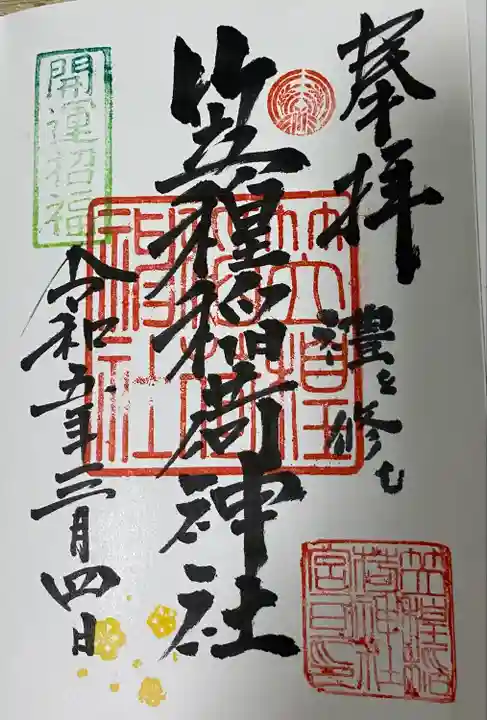 奉拝
禮を修む
笠䅣稲荷神社
開運招福
令和五年三月四日
笠䅣
稲荷
神社
笠䅣稲
荷神社